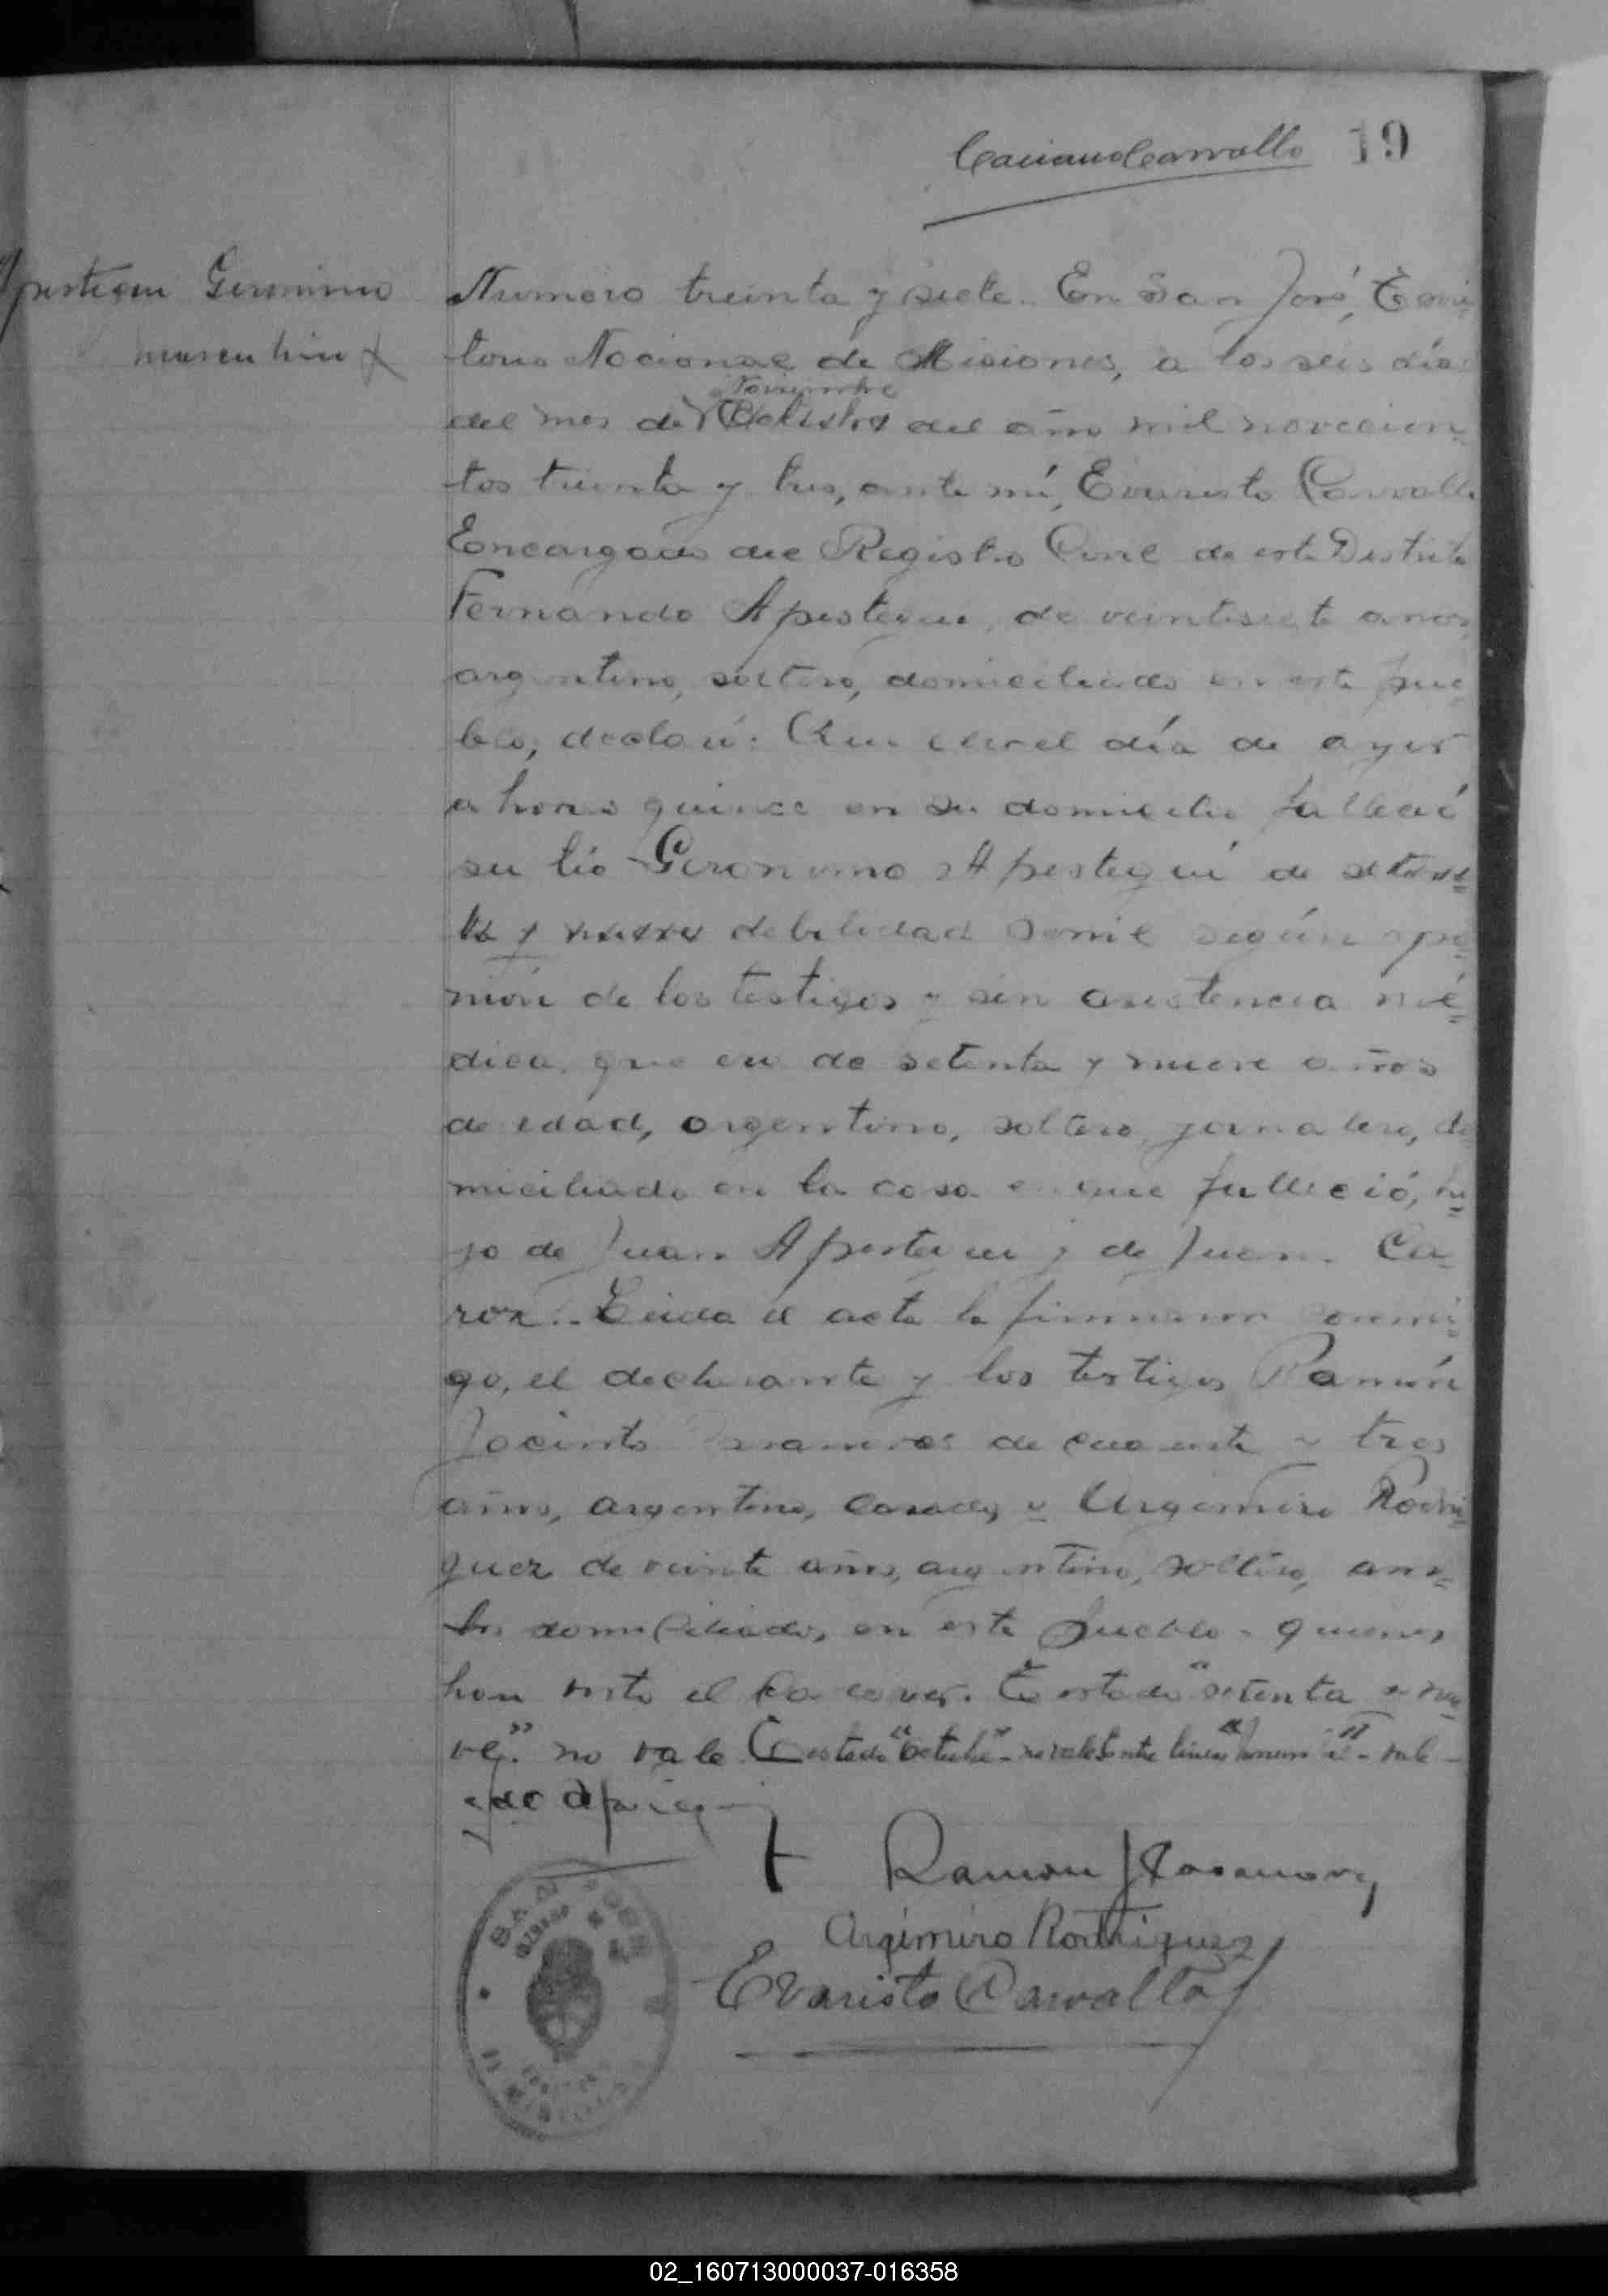 Casiano Carvallo 19
Apestegui Geronimo
masculino
Numero treinta y siete. En San José, Terri-
torio Nacional de Misiones, a los seis días
Noviembre
del mes de Octubre del año mil novecien-
tos treinta y tres, ante mí, Evaristo Carvallo
Encargado del Registro Civil de este Distrito
Fernando Apestegui, de veintisiete años,
argentino, soltero, domiciliado en este pue-
blo, declaró: Que el día de ayer
a horas quince en su domicilio falleció
su tío Geronimo Apesteguí de seten-
ta y nueve debilidad senil según opi-
nión de los testigos y sin asistencia mé-
dica, que era de setenta y nueve años
de edad, argentino, soltero, jornalero, do
miciliado en la casa en que falleció, hi-
jo de Juan Apestegui y de Juana Ca-
roz. Leida el acta la firmaron conmi-
go, el declarante y los testigos Ramón
Jacinto de cuarenta y tres
años, argentino, casado, y Argemiro Rodri-
guez de veinte años, argentino, soltero, am-
bos domiciliados en este pueblo. quienes
han visto el cadaver. Testado "setenta y nue
ve" no vale. Testado "octubre" no vale Entre lineas "Noviembre" - vale -
Ramon J Casanova
Argimiro Rodriguez
Evaristo Carvallo
02_160713000037-016358